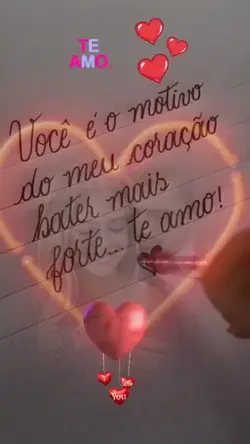 TE
AMO
Você é o motivo
do meu coração
bater mais
forte... te amo!
You